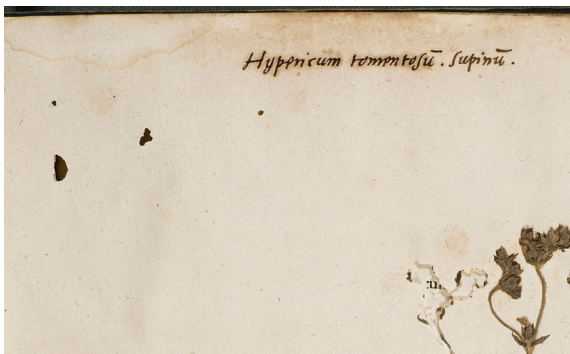 Hypericum tomentosū. supinū.